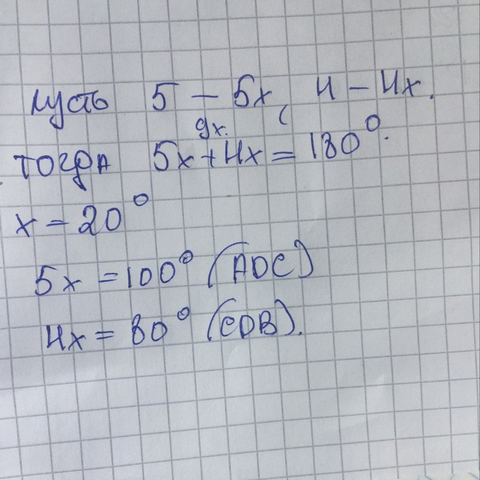 Пусть 5 – 5x, 4 – 4x.
9x.
тогда 5x + 4x = 180°.
x – 20°
5x = 100° (ADC)
4x = 80° (CDB).